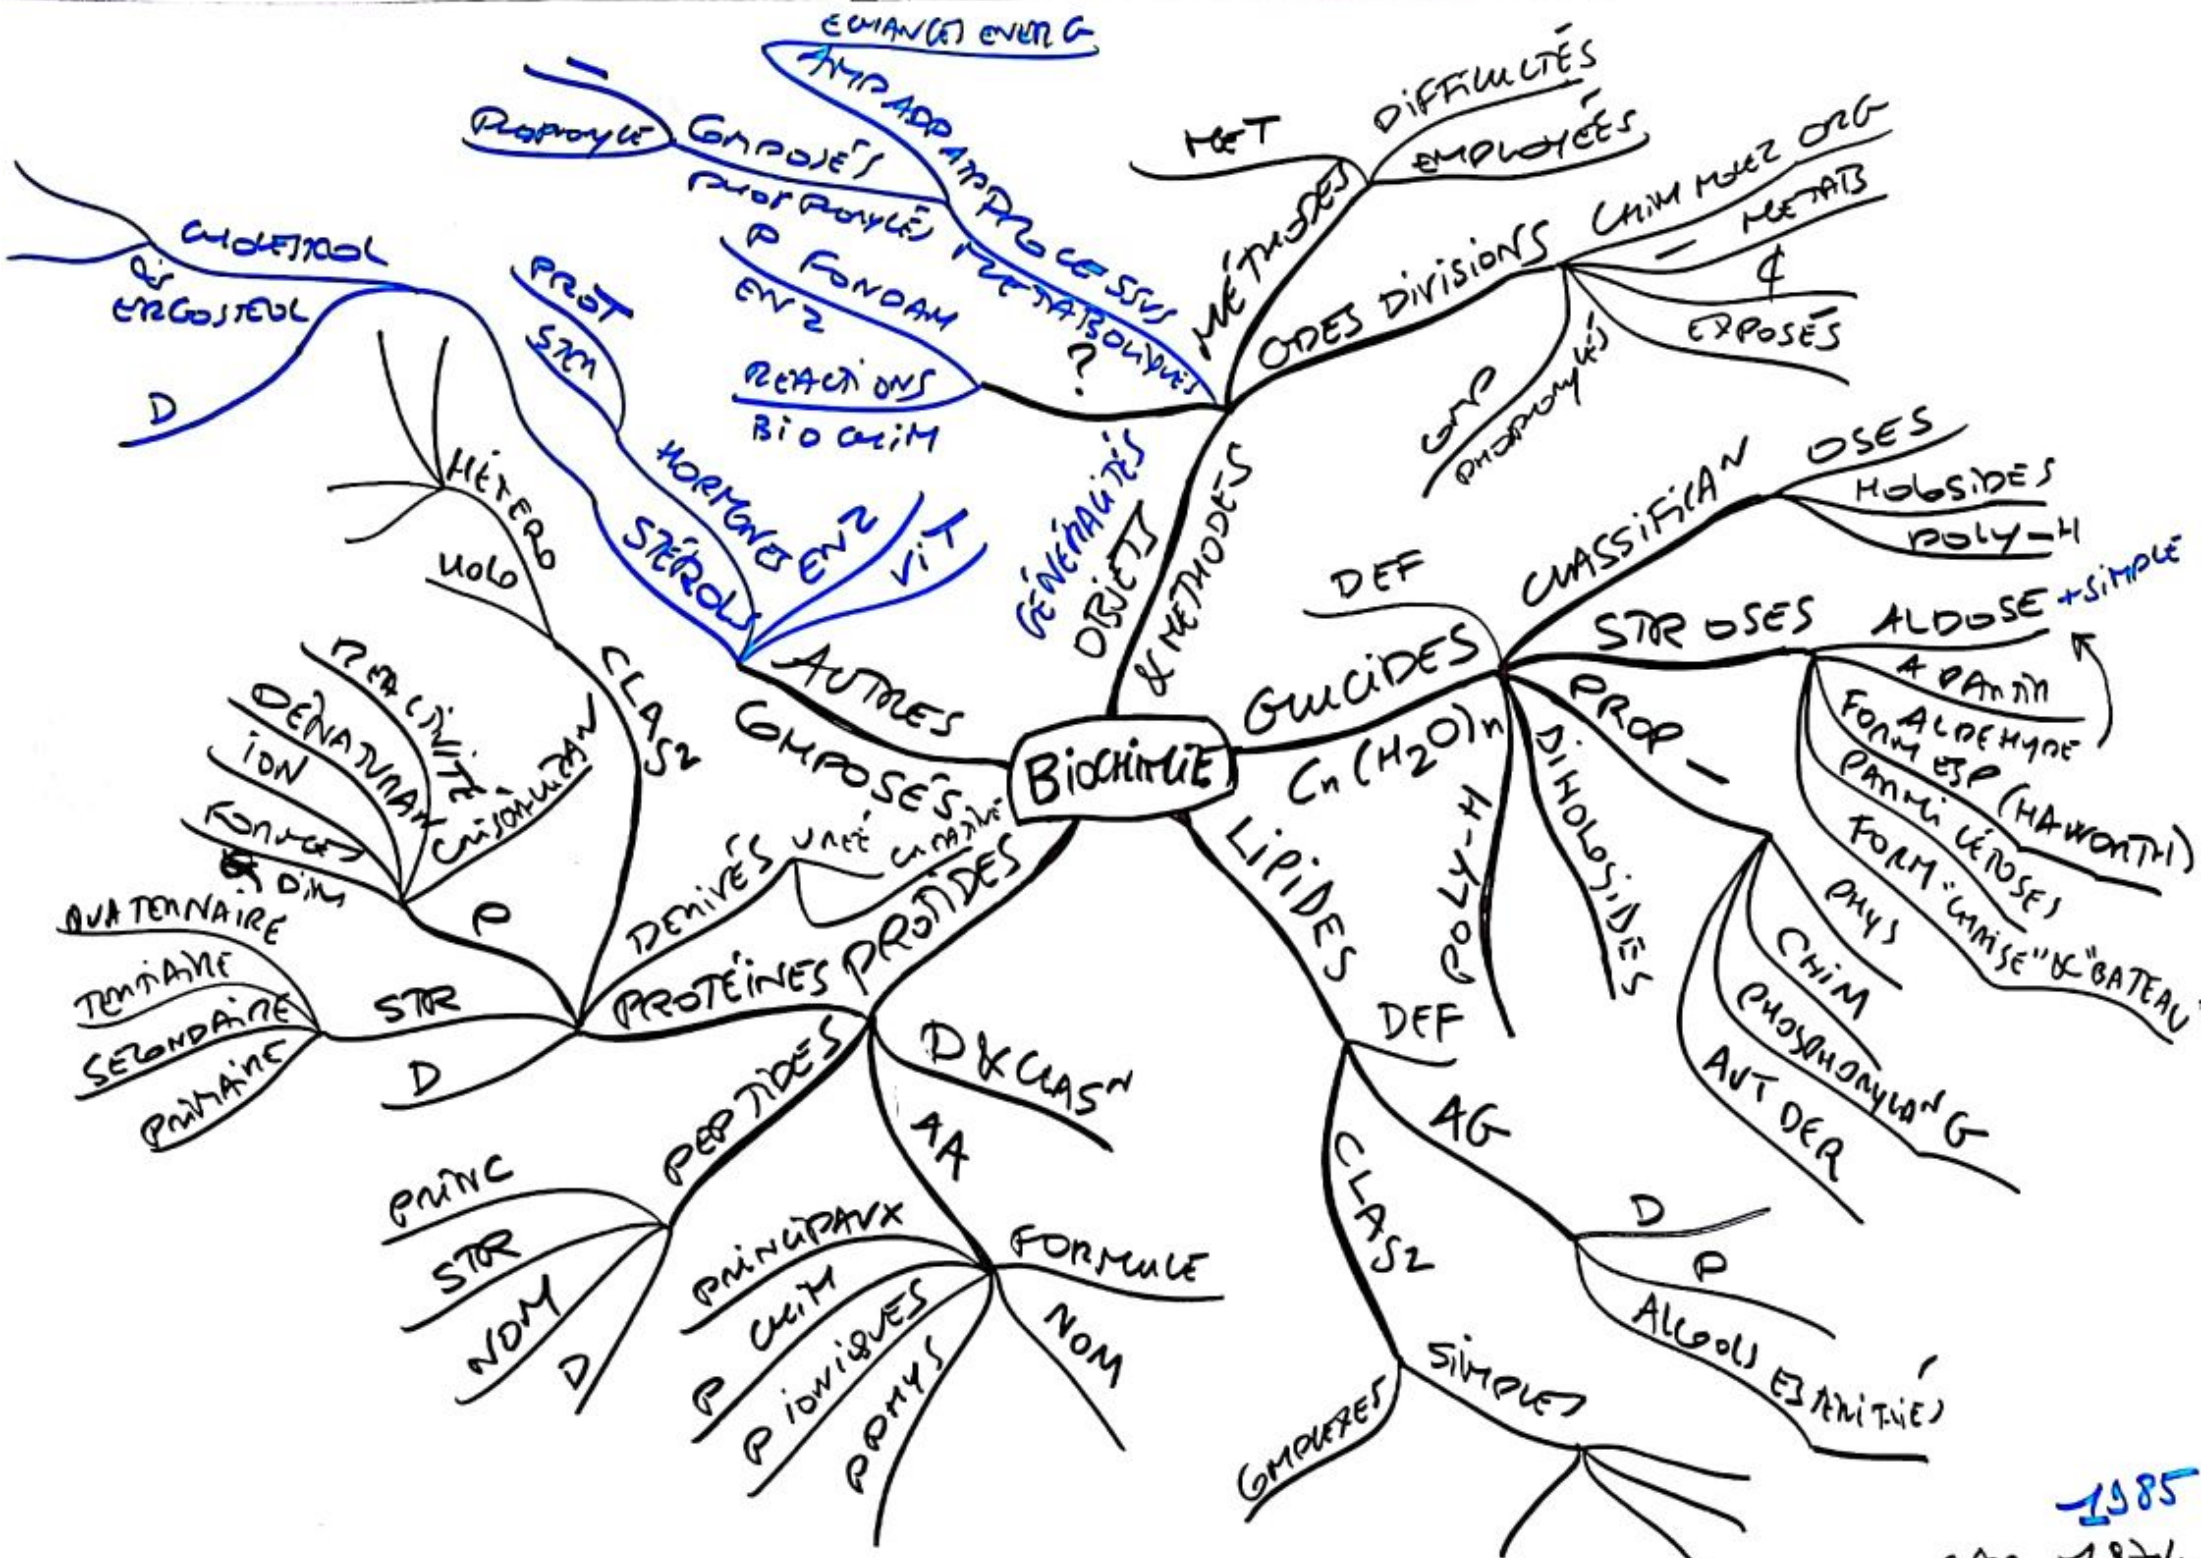 BIOCHIMIE
GÉNÉRALITÉS
OBJETS
& METHODES
MÉTHODES
MET
DIFFICULTÉS
EMPLOYÉES
ODES DIVISIONS
CHIM MOLEZ ORG
— METAB
¢
EXPOSÉS
COMP
PHOSPHORYLÉS
?
PROCESSUS
METABOLIQUES
AMP ADP ATP
ECHANGES ENERG
COMPOSÉS
PHOSPHORYLÉS
P FONDAM
ENZ
REACTIONS
BIOCHIM
GLUCIDES
Cn (H2O)n
DEF
CLASSIFICAN
OSES
HOLOSIDES
POLY-H
STR OSES
ALDOSE + SIMPLE
A PARTIR
ALDEHYDE
FORM ESP (HAWORTH)
PARMI CÉTOSES
FORM. "CHAISE" & "BATEAU"
PROP —
PHYS
CHIM
PHOSPHORYLAN G
AUT DER
DIHOLOSIDES
POLY-H
LIPIDES
DEF
AG
D
P
ALCOOLS ESTÉRIFIÉS
CLAS2
SIMPLES
COMPLEXES
PROTIDES
D & CLASN
AA
FORMULE
NOM
P PHYS
P IONIQUES
P CHIM
PRINCIPAUX
PEPTIDES
PRINC
STR
NOM
D
PROTÉINES
DERIVÉS
URÉE
CREATINE
CLAS2
HOLO
HÉTERO
P
FORMES
& DIM
ION
DÉNATURAN
REACTIVITÉ
CRISTALLISAN
STR
QUATERNAIRE
TERTIAIRE
SECONDAIRE
PRIMAIRE
D
AUTRES
COMPOSÉS
STÉROLS
CHOLESTROL
ERGOSTEROL
D
HORMONES
PROT
STER
ENZ
VIT
1985